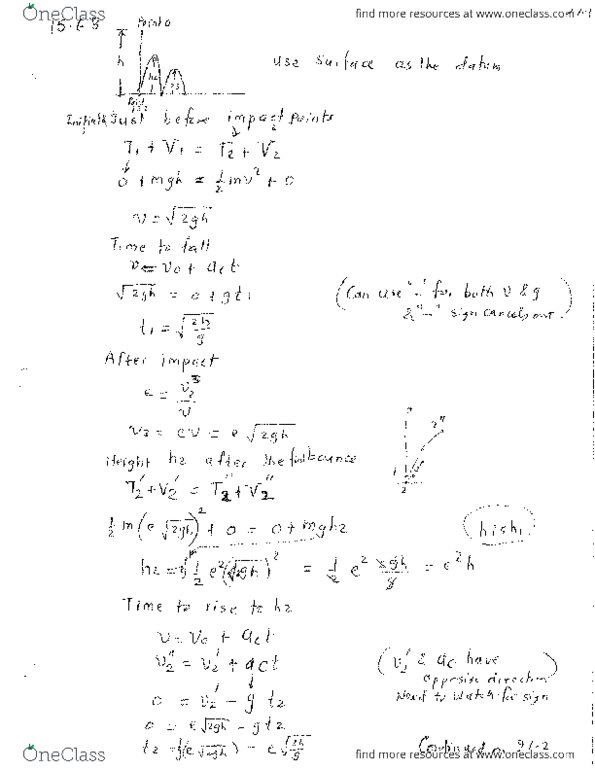 OneClass
find more resources at www.oneclass.com
find more resources at www.oneclass.com
15.63
Point 0
h
h2
use surface as the datum
Just before impact points
T1 + V1 = T2 + V2
0 + mgh = 1/2 mv² + 0
v = √2gh
Time to fall
v = v0 + act
√2gh = 0 + gt1
t1 = √2h/g
(Can use "-" for both v & g
& "-" sign cancels out.)
After impact
e = v2/v
v2 = ev = e√2gh
Height h2 after the first bounce
T2' + V2' = T2" + V2"
1/2 m(e√2gh)² + 0 = 0 + mgh2
h is h1
h2 = 1/2 e²(√2gh)² = 1/2 e² 2gh/g = e²h
Time to rise to h2
v = v0 + act
v2" = v2' + act
(v2' & ac have
opposite direction
Need to watch for sign
0 = v2' - g t2
0 = e√2gh - gt2
t2 = 1/g(e√2gh) = e√2h/g
Continued on
OneClass
find more resources at www.oneclass.com
find more resources at www.oneclass.com